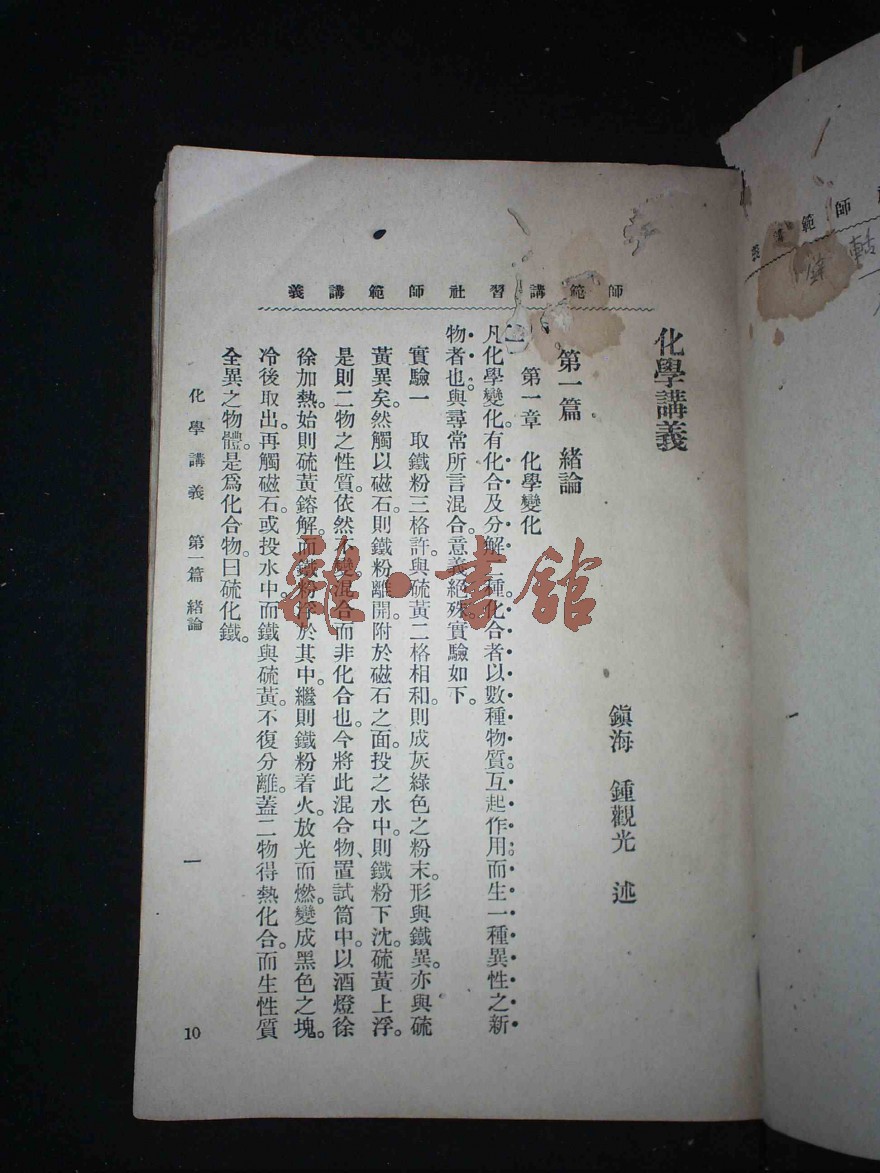 師範講習社師範講義
化學講義
鎭海　鍾觀光　述
第一篇　緒論
第一章　化學變化
(一)
凡化學變化。有化合及分解二種。化合者以數種物質。互起作用。而生一種異性之新
物者也。與尋常所言混合。意義絕殊。實驗如下。
實驗一　取鐵粉三格許。與硫黃二格相和。則成灰綠色之粉末。形與鐵異。亦與硫
黃異矣。然觸以磁石。則鐵粉離開。附於磁石之面。投之水中。則鐵粉下沈。硫黃上浮。
是則二物之性質。依然不變。混合而非化合也。今將此混合物、置試筒中。以酒燈徐
徐加熱。始則硫黃鎔解。而鐵粉浮於其中。繼則鐵粉着火。放光而燃。變成黑色之塊。
冷後取出。再觸磁石。或投水中。而鐵與硫黃。不復分離。蓋二物得熱化合。而生性質
全異之物體。是爲化合物。曰硫化鐵。
化學講義　第一篇　緒論
一
10
師範
講義
雜·書館